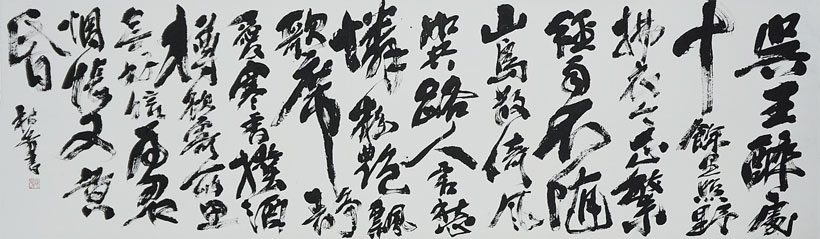 吳王醉處
十餘里照野
拂衣今正繁
經雨不隨
山鳥散倚風
疑共路人言愁
憐粉艷飄
歌席靜
愛寒香撲酒
樽欲寄所思
無好信為君
惆悵又黃
昏